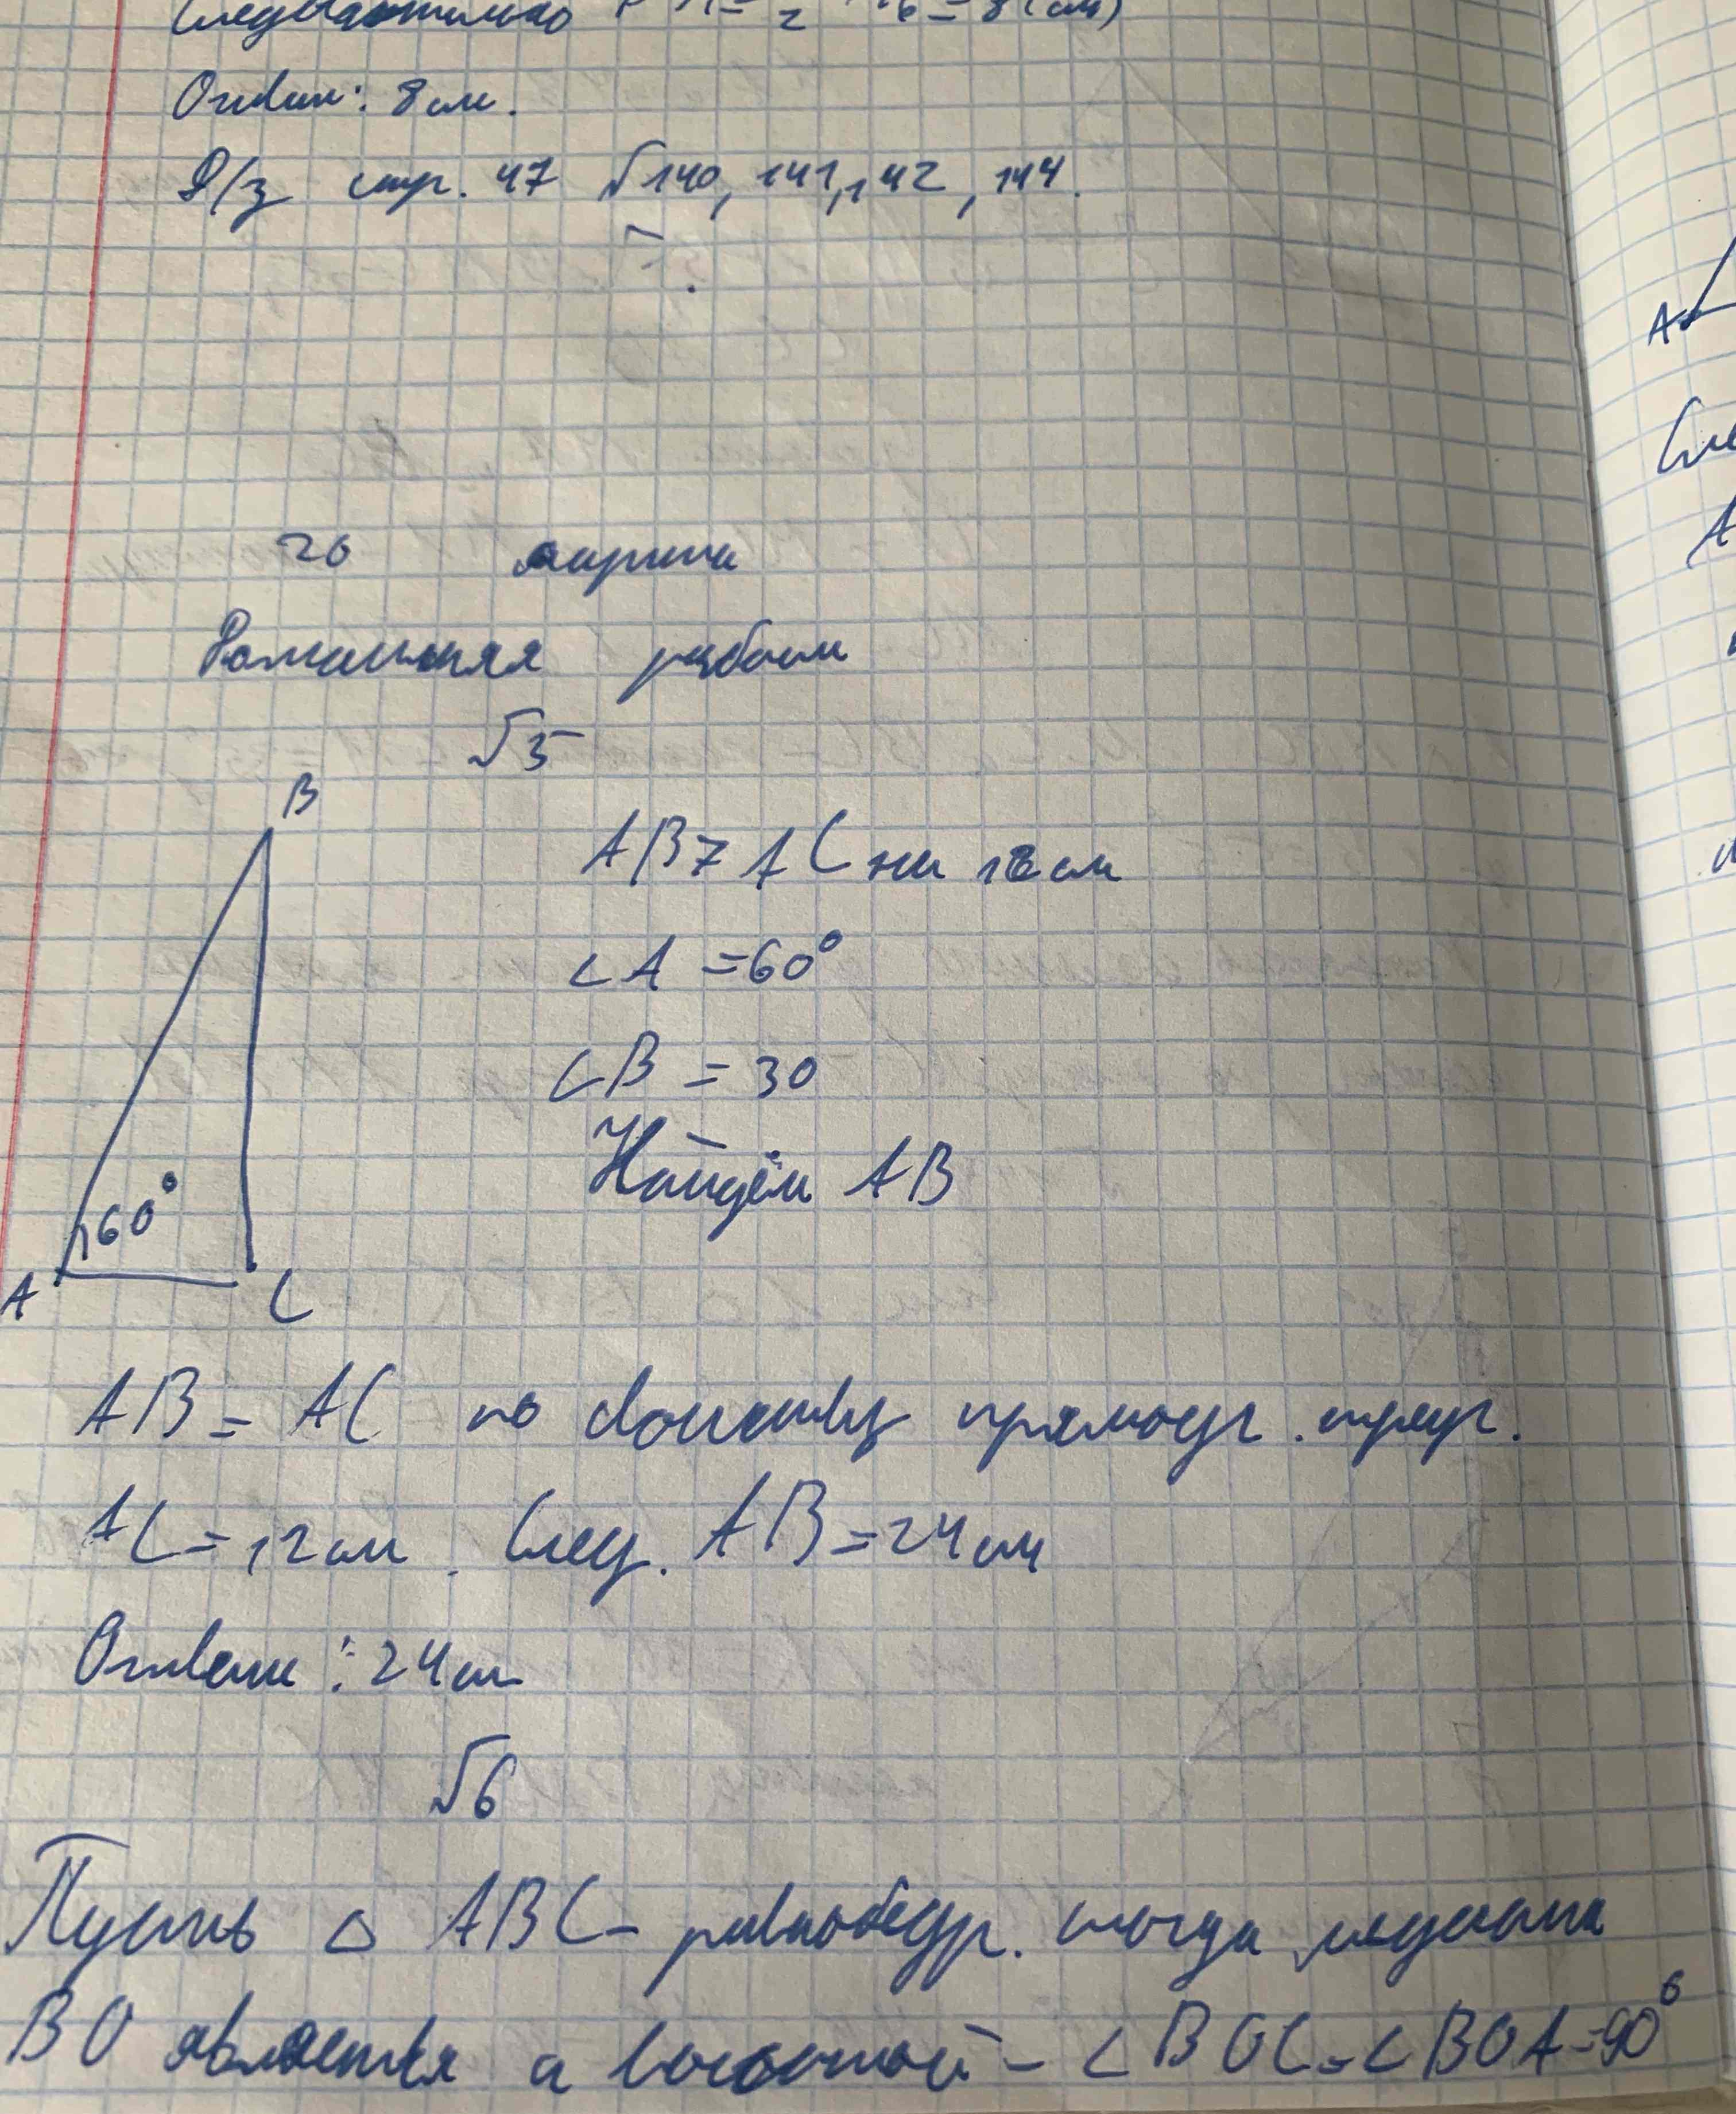 Следовательно
Ответ: 8 см.
Д/з стр. 47 №140, 141, 142, 144.
А
Сле
А
20 апреля
Домашняя работа
№5
B
AB > AC на 12 см
∠A = 60°
∠B = 30
Найдём AB
60°
A C
AB = AC по свойству прямоуг. треуг.
AC = 12 см. След. AB = 24 см
Ответ: 24 см
№6
Пусть △ ABC - равнобедр. тогда медиана
BO является и высотой - ∠BOC = ∠BOA = 90°